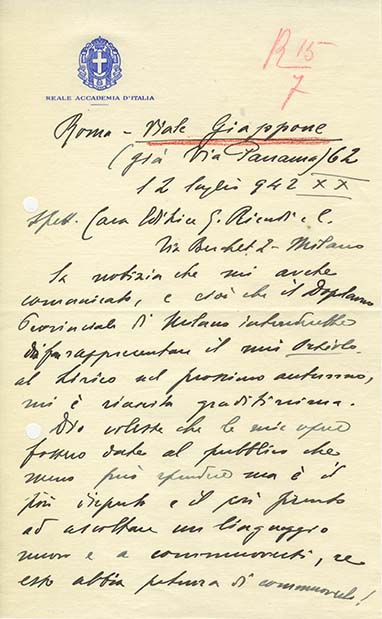 R 15
7
REALE ACCADEMIA D'ITALIA
Roma - Viale Giappone
(già Via Panama) 62
12 luglio 942 XX
Spett. Casa Editrice G. Ricordi e C.
Via Berchet 2 - Milano
La notizia che mi avete
comunicato, e cioè che il Dopolavoro
Provinciale di Milano intenderebbe
far rappresentare il mio
al Lirico nel prossimo autunno,
mi è riuscita graditissima.
Dio volesse che le mie opere
fossero date al pubblico che
meno può spendere ma è il
più e il più pronto
ad ascoltare un linguaggio
nuovo e a commuoversi, se
esso abbia potenza di commuoverlo!